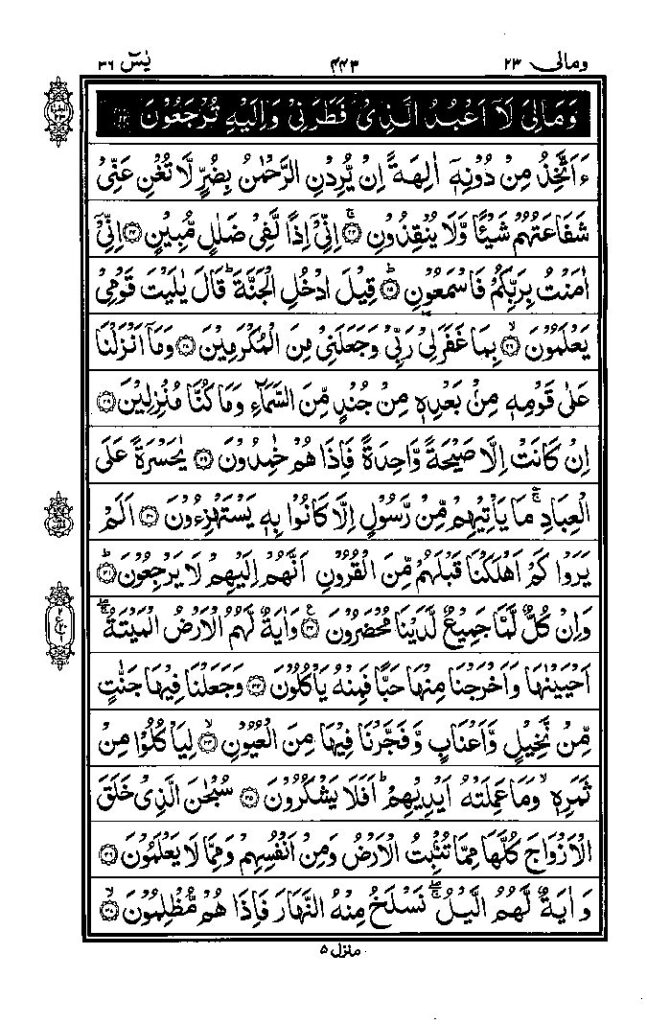 ومالی ۲۳ ۴۴۳ یٰسٓ ۳۶
وَمَالِيَ لَآ اَعْبُدُ الَّذِيْ فَطَرَنِيْ وَاِلَيْهِ تُرْجَعُوْنَ ۝۲۲
ءَاَتَّخِذُ مِنْ دُوْنِهٖٓ اٰلِهَةً اِنْ يُّرِدْنِ الرَّحْمٰنُ بِضُرٍّ لَّا تُغْنِ عَنِّيْ
شَفَاعَتُهُمْ شَيْـًٔا وَّلَا يُنْقِذُوْنِ ۝۲۳ۚ اِنِّيْٓ اِذًا لَّفِيْ ضَلٰلٍ مُّبِيْنٍ ۝۲۴ اِنِّيْٓ
اٰمَنْتُ بِرَبِّكُمْ فَاسْمَعُوْنِ ۝۲۵ؕ قِيْلَ ادْخُلِ الْجَنَّةَ ؕ قَالَ يٰلَيْتَ قَوْمِيْ
يَعْلَمُوْنَ ۝۲۶ۙ بِمَا غَفَرَ لِيْ رَبِّيْ وَجَعَلَنِيْ مِنَ الْمُكْرَمِيْنَ ۝۲۷ وَمَآ اَنْزَلْنَا
عَلٰى قَوْمِهٖ مِنْۢ بَعْدِهٖ مِنْ جُنْدٍ مِّنَ السَّمَآءِ وَمَا كُنَّا مُنْزِلِيْنَ ۝۲۸
اِنْ كَانَتْ اِلَّا صَيْحَةً وَّاحِدَةً فَاِذَا هُمْ خٰمِدُوْنَ ۝۲۹ يٰحَسْرَةً عَلَى
الْعِبَادِ ۚ مَا يَاْتِيْهِمْ مِّنْ رَّسُوْلٍ اِلَّا كَانُوْا بِهٖ يَسْتَهْزِءُوْنَ ۝۳۰ اَلَمْ
يَرَوْا كَمْ اَهْلَكْنَا قَبْلَهُمْ مِّنَ الْقُرُوْنِ اَنَّهُمْ اِلَيْهِمْ لَا يَرْجِعُوْنَ ۝۳۱ؕ
وَاِنْ كُلٌّ لَّمَّا جَمِيْعٌ لَّدَيْنَا مُحْضَرُوْنَ ۝۳۲ وَاٰيَةٌ لَّهُمُ الْاَرْضُ الْمَيْتَةُ ۖۚ
اَحْيَيْنٰهَا وَاَخْرَجْنَا مِنْهَا حَبًّا فَمِنْهُ يَاْكُلُوْنَ ۝۳۳ وَجَعَلْنَا فِيْهَا جَنّٰتٍ
مِّنْ نَّخِيْلٍ وَّاَعْنَابٍ وَّفَجَّرْنَا فِيْهَا مِنَ الْعُيُوْنِ ۝۳۴ۙ لِيَاْكُلُوْا مِنْ
ثَمَرِهٖ ۙ وَمَا عَمِلَتْهُ اَيْدِيْهِمْ ؕ اَفَلَا يَشْكُرُوْنَ ۝۳۵ سُبْحٰنَ الَّذِيْ خَلَقَ
الْاَزْوَاجَ كُلَّهَا مِمَّا تُنْۢبِتُ الْاَرْضُ وَمِنْ اَنْفُسِهِمْ وَمِمَّا لَا يَعْلَمُوْنَ ۝۳۶
وَاٰيَةٌ لَّهُمُ الَّيْلُ ۖۚ نَسْلَخُ مِنْهُ النَّهَارَ فَاِذَا هُمْ مُّظْلِمُوْنَ ۝۳۷ۙ
منزل ۵